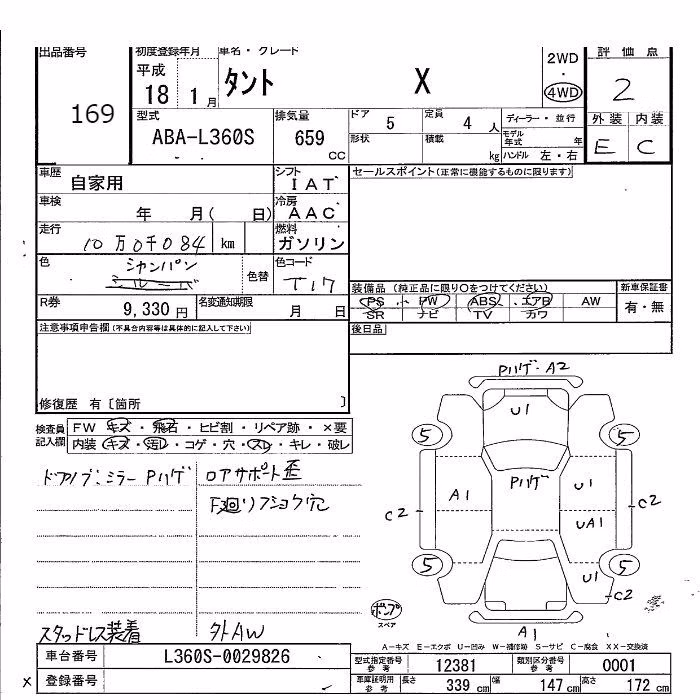 出品番号
169
初度登録年月
平成
18 1月
車名・グレード
タント X
2WD
・
4WD
評価点
2
外装 内装
E C
型式
ABA-L360S
排気量
659
CC
ドア
5
定員
4 人
形状
積載
kg
ディーラー・並行
モデル年式 年
ハンドル 左・右
車歴
自家用
シフト
IAT
セールスポイント(正常に機能するものに限ります)
車検
年 月( 日)
冷房
AAC
走行
10万0千084 km
燃料
ガソリン
色
シャンパン
シルバー
色替
色コード
T17
装備品 (純正品に限り○をつけてください)
PS・PW ABS・エアB AW
SR ナビ TV カワ
新車保証書
有・無
R券
9,330円
名変通知期限
月 日
後日品
注意事項申告欄(不具合内容等は具体的に記入して下さい)
修復歴 有〔箇所 〕
検査員記入欄
FW キズ・飛石・ヒビ割・リペア跡・×要
内装 キズ・汚レ・コゲ・穴・スレ・キレ・破レ
ドアノブ:ミラー Pハゲ
ロアサポート歪
F廻リフショク穴
スタッドレス装着
外AW
Pハゲ・A2
U1
5
5
A1
Pハゲ
U1
C2
C2
UA1
5
5
U1
C2
ポンプ
スペア
A1
A-キズ E-エクボ U-凹み W-補修跡 S-サビ C-腐食 XX-交換済
車台番号
L360S-0029826
型式指定番号
参考
12381
類別区分番号
参考
0001
x
登録番号
車庫証明用
参考
長さ
339 cm
幅
147 cm
高さ
172 cm